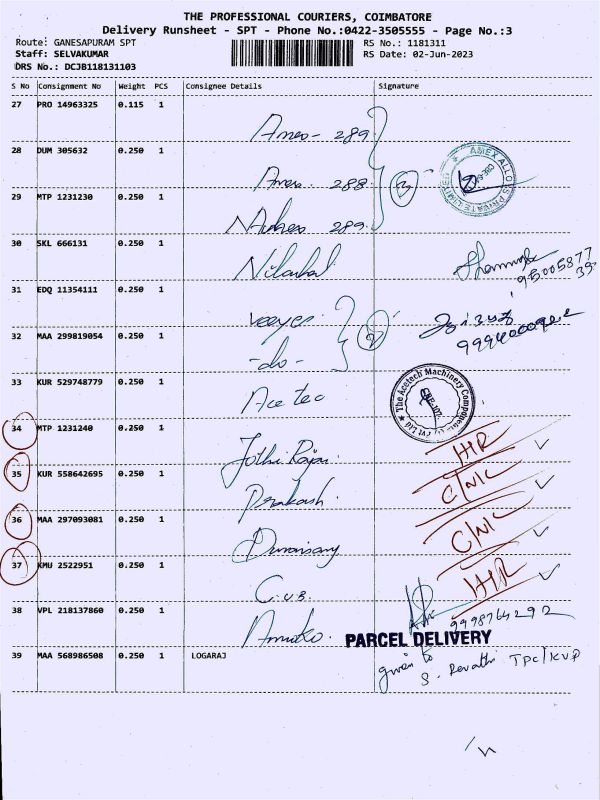 THE PROFESSIONAL COURIERS, COIMBATORE
Delivery Runsheet - SPT - Phone No.:0422-3505555 - Page No.:3
Route: GANESAPURAM SPT RS No.: 1181311
Staff: SELVAKUMAR RS Date: 02-Jun-2023
DRS No.: DCJB118131103
S No Consignment No Weight PCS Consignee Details Signature
27 PRO 14963325 0.115 1
28 DUM 305632 0.250 1
29 MTP 1231230 0.250 1
289
30 SKL 666131 0.250 1
31 EDQ 11354111 0.250 1
32 MAA 299819054 0.250 1
-do-
33 KUR 529748779 0.250 1
Ace tec
34 MTP 1231240 0.250 1
35 KUR 558642695 0.250 1
Prakash C/NC
36 MAA 297093081 0.250 1
C/NC
37 KMU 2522951 0.250 1
C.U.B.
38 VPL 218137860 0.250 1
9998764292
PARCEL DELIVERY
39 MAA 568986508 0.250 1 LOGARAJ
given to
S. Revathi TPC/KVP
AMEX ALLOYS PRIVATE LIMITED
The Acetech Machinery Components